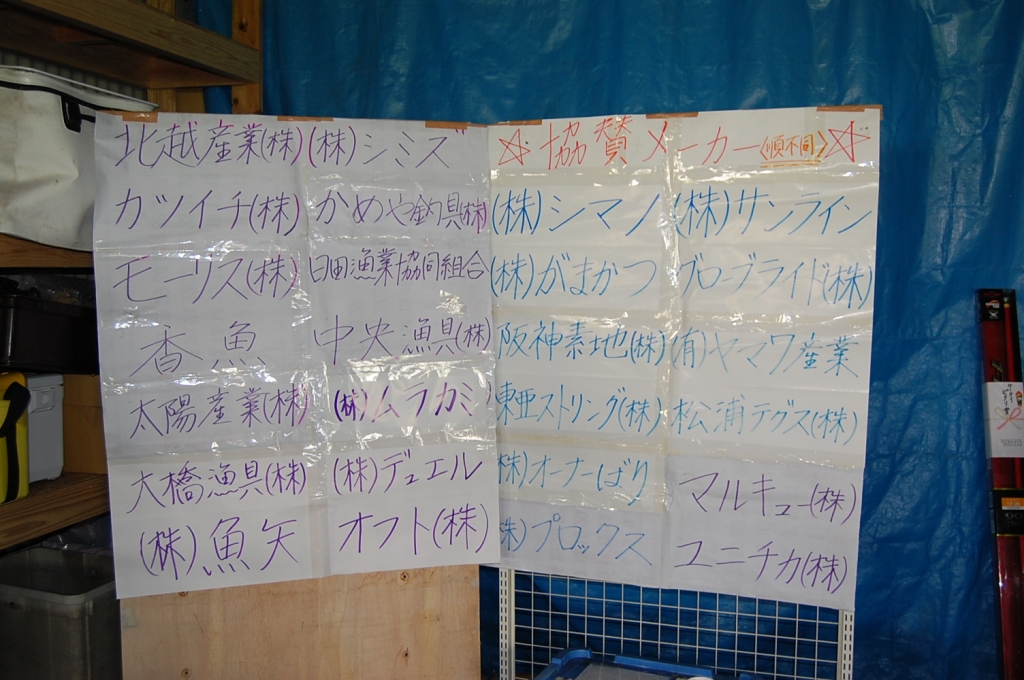 ☆協賛メーカー〈順不同〉☆
(株)シマノ (株)サンライン
(株)がまかつ グローブライド(株)
阪神素地(株) (有)ヤマワ産業
東亜ストリング(株) 松浦テグス(株)
(株)オーナーばり マルキュー(株)
(株)プロックス ユニチカ(株)
北越産業(株) (株)シミズ
カツイチ(株) かめや釣具(株)
モーリス(株) 日田漁業協同組合
香魚 中央漁具(株)
太陽産業(株) (株)ムラカミ
大橋漁具(株) (株)デュエル
(株)魚矢 オフト(株)